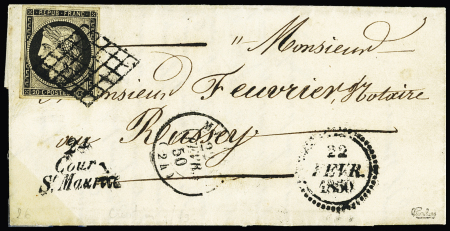 REPUB. FRANC.
20 c POSTE 20 c
" Monsieur
Monsieur Feuvrier, Notaire
Russey
24
Cour
St Maurice
FEVR.
50
(24)
22
FEVR.
1850